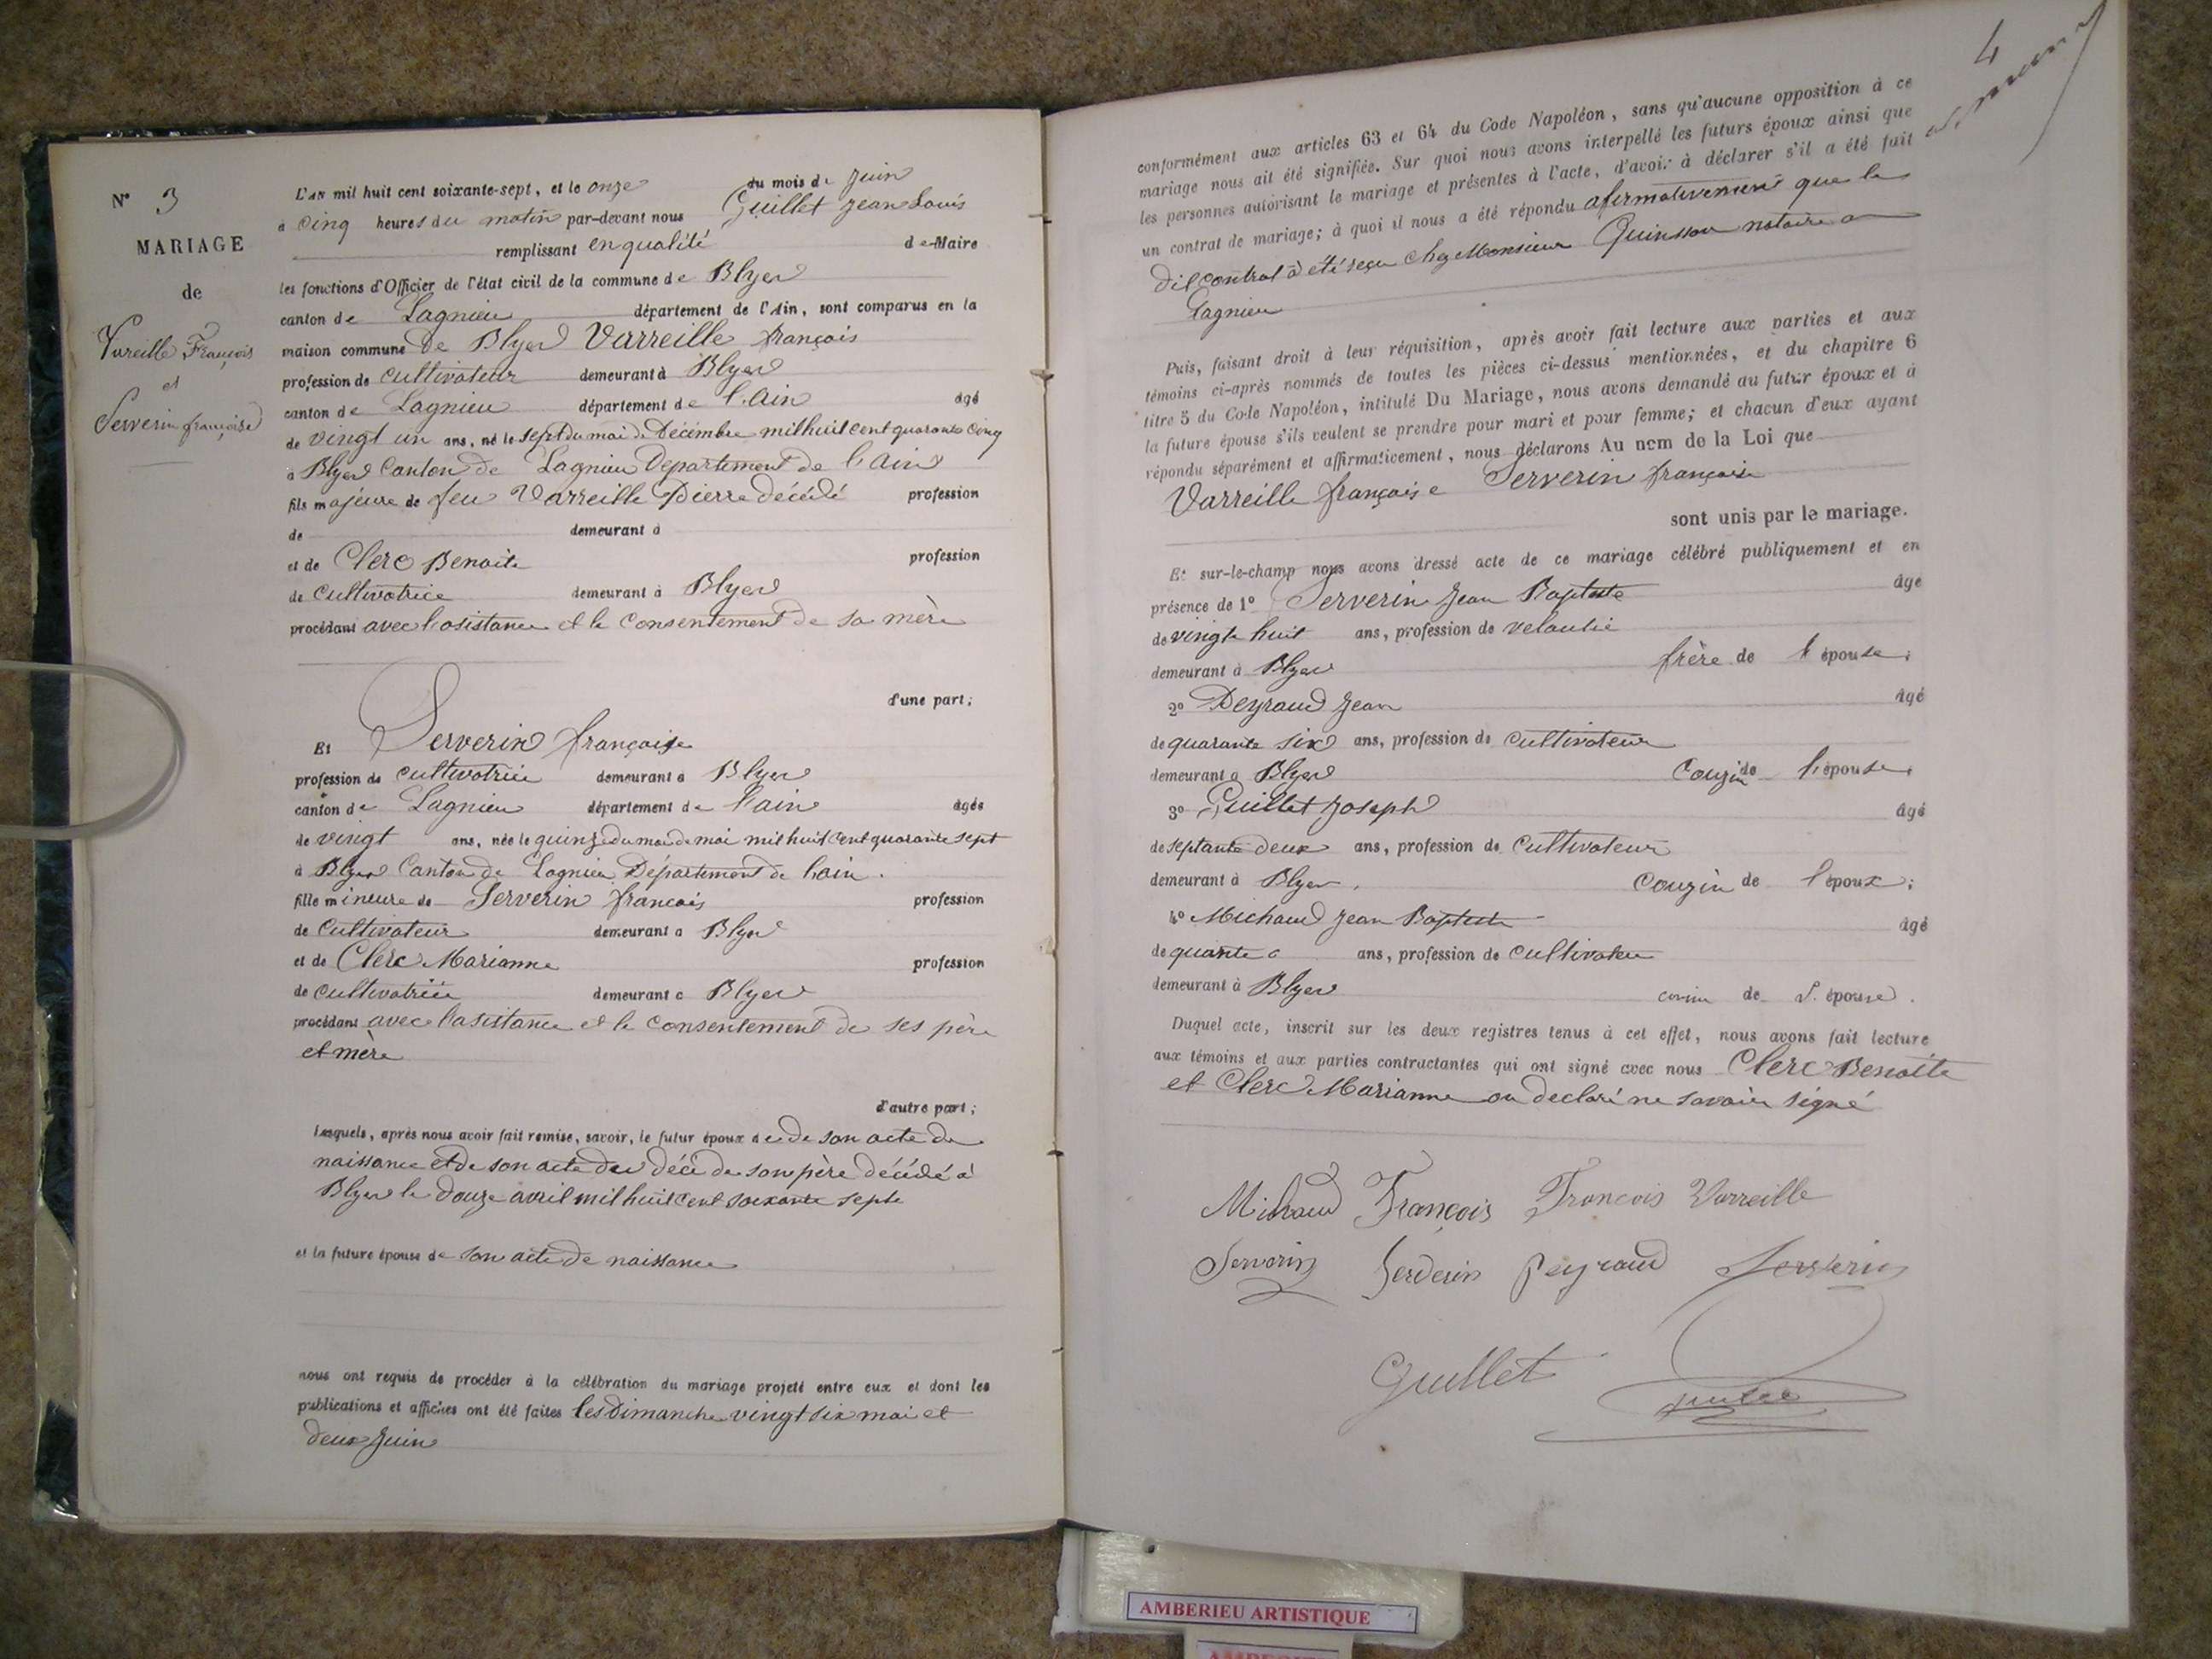 N° 3
MARIAGE
de
Vareille François
et
Serverin françoise
L'AN mil huit cent soixante-sept, et le onze du mois de juin
à cinq heures du matin par-devant nous Guillet Jean Louis
remplissant en qualité de Maire
les fonctions d'Officier de l'état civil de la commune de Blyes
canton de Lagnieu département de l'Ain, sont comparus en la
maison commune de Blyes Varreille françois
profession de cultivateur demeurant à Blyes
canton de Lagnieu département de l'Ain âgé
de vingt un ans, né le sept du moi de Décembre mil huit cent quarante cinq
à Blyes Canton de Lagnieu Departement de l'Ain
fils majeure de feu Varreille Pierre décédé profession
de demeurant à
et de Clerc Benoite profession
de Cultivatrice demeurant à Blyes
procédant avec l'asistance et le Consentement de sa mère
d'une part;
Et Serverin françoise
profession de cultivatrice demeurant à Blyes
canton de Lagnieu département de l'ain âgée
de vingt ans, née le quinze du moi de mai mil huit cent quarante sept
à Blyes Canton de Lagnieu Département de l'ain.
fille mineure de Serverin francois profession
de Cultivateur demeurant à Blyes
et de Clerc Marianne profession
de cultivatrice demeurant à Blyes
procédant avec l'asistance et le consentement de ses père
et mère
d'autre part;
Lesquels, après nous avoir fait remise, savoir, le futur époux de de son acte de
naissance et de son acte de décé de son père décédé à
Blyes le douze avril mil huit cent soixante septe
et la future épouse de son acte de naissance
nous ont requis de procéder à la célébration du mariage projeté entre eux et dont les
publications et affiches ont été faites les Dimanche vingt six mai et
deux Juin
4
conformément aux articles 63 et 64 du Code Napoléon, sans qu'aucune opposition à ce
mariage nous ait été signifiée. Sur quoi nous avons interpellé les futurs époux ainsi que
les personnes autorisant le mariage et présentes à l'acte, d'avoir à déclarer s'il a été fait
un contrat de mariage; à quoi il nous a été répondu afirmativement que le
dil contrat à été reçu chez Monsieur Quinson notaire a
Lagnieu
Puis, faisant droit à leur réquisition, après avoir fait lecture aux parties et aux
témoins ci-après nommés de toutes les pièces ci-dessus mentionnées, et du chapitre 6
titre 5 du Code Napoléon, intitulé Du Mariage, nous avons demandé au futur époux et à
la future épouse s'ils veulent se prendre pour mari et pour femme; et chacun d'eux ayant
répondu séparément et affirmativement, nous déclarons Au nom de la Loi que
Varreille françois e Serverin françoise
sont unis par le mariage.
Et sur-le-champ nous avons dressé acte de ce mariage célébré publiquement et en
présence de 1° Serverin Jean Baptiste âgé
de vingte huit ans, profession de veloutié
demeurant à Blyes frère de l'épouse;
2° Peyraud Jean âgé
de quarante six ans, profession de cultivateur
demeurant à Blyes Couzin de l'épouse;
3° Guillet Joseph âgé
de septante deux ans, profession de Cultivateur
demeurant à Blyes, Couzin de l'époux;
4° Michaud Jean Baptiste âgé
de ans, profession de Cultivateur
demeurant à Blyes de l'épouse.
Duquel acte, inscrit sur les deux registres tenus à cet effet, nous avons fait lecture
aux témoins et aux parties contractantes qui ont signé avec nous Clerc Benoite
et Clerc Marianne on declaré ne savoir signé
Michaud François Francois Varreille
Serverin Serverin Peyraud Serverin
Guillet
AMBERIEU ARTISTIQUE